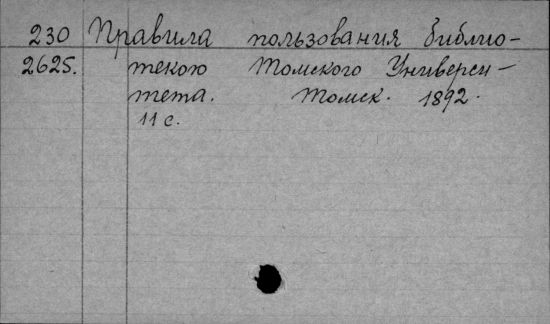 230 Правила пользования библио-
2625. текою Томского Универси-
тета. Томск. 1892.
11 с.